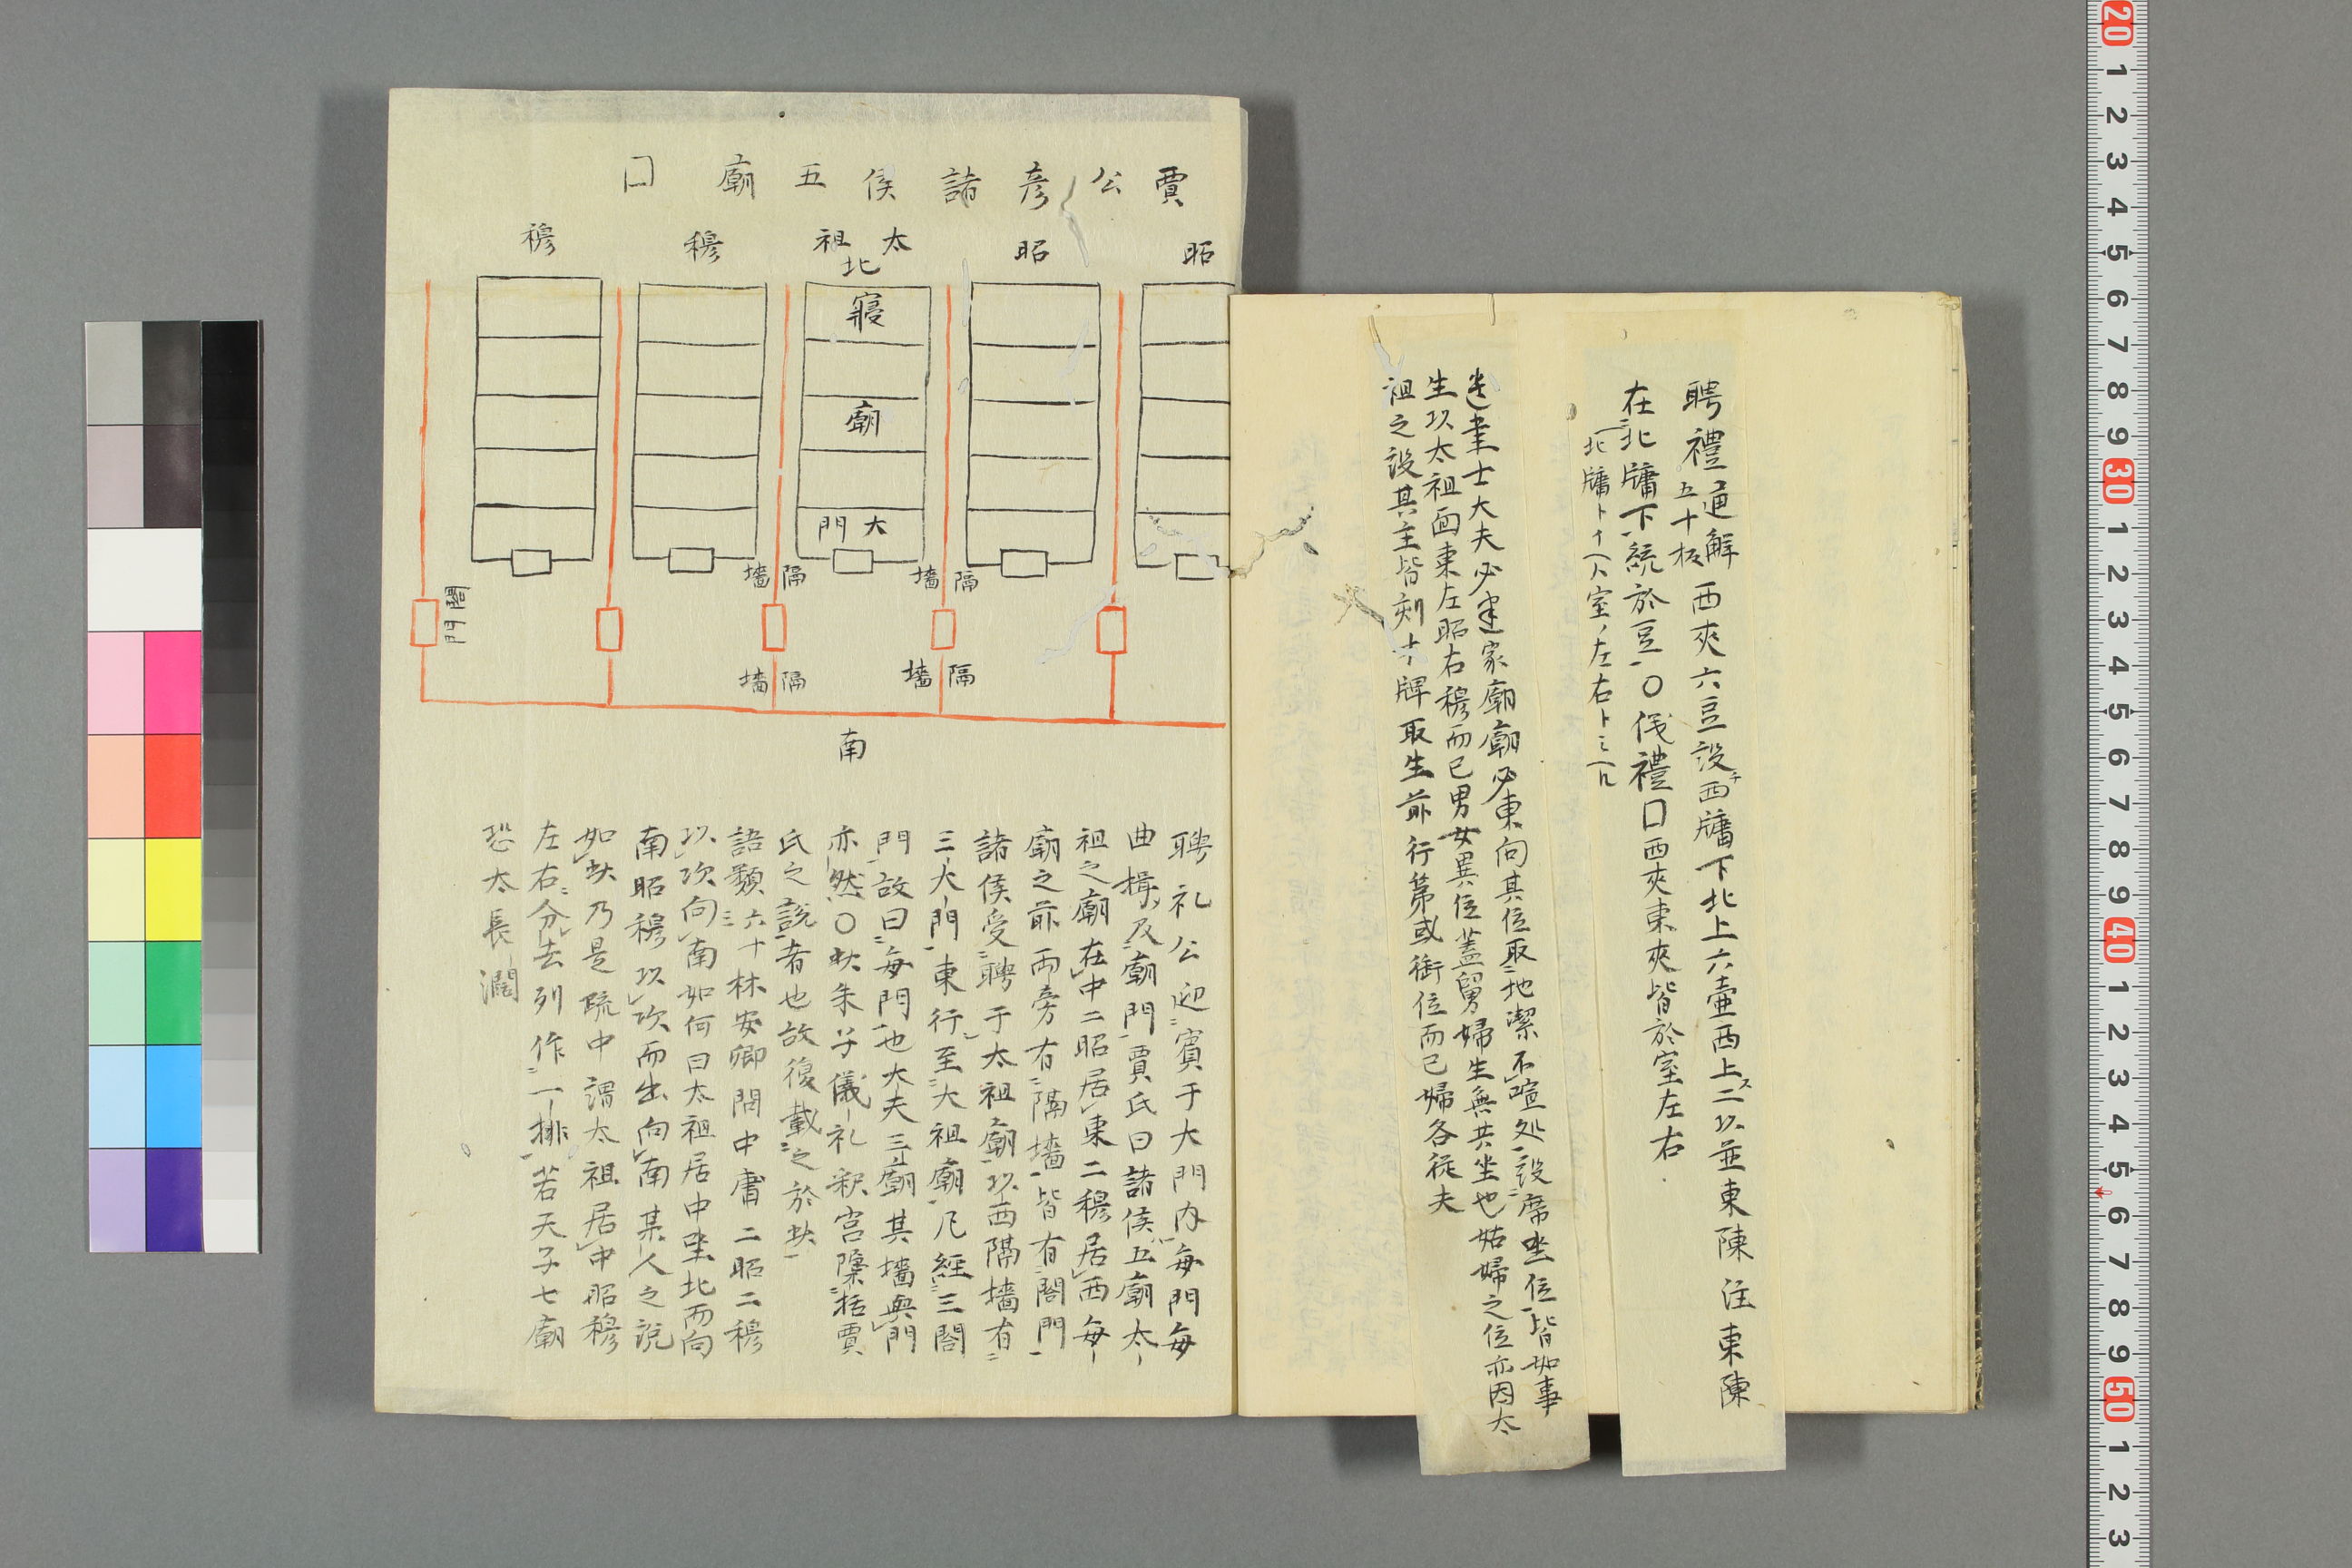 聘禮通解五十板西夾六豆設西牖下北上六壷西上二以並東陳注東陳
在北牖下統於豆〇儀禮囗西夾東夾皆於室左右
士大夫必建家廟廟必東向其位取地潔不喧処設席坐位皆如事
生以太祖面東左昭右穆而已男女異位蓋舅婦生無共坐也姑婦之位亦因太
祖之設其主皆刻木牌取生前行第或銜位而已婦各従夫
賈公彦諸侯五廟囗
昭
昭
太祖
穆
穆
北
寝
廟
大門
隔墻
隔墻
隔墻
隔墻
閤門
南
聘礼公迎賓于大門内毎門毎
曲揖及廟門賈氏曰諸侯五廟太
祖之廟在中二昭居東二穆居西毎
廟之前兩旁有隔墻皆有閤門
諸侯受聘于太祖廟以西隔墻有
三大門東行至大祖廟凢經三閤
門故曰毎門也大夫三廟其墻與門
亦然〇此朱子儀礼釈宮隱括賈
氏之説者也故復載之於此
語類六十林安卿問中庸二昭二穆
以次向南如何曰太祖居中坐北而向
南昭穆以次而出向南某人之説
如此乃是疏中謂太祖居中昭穆
左右分去列作一排若天子七廟
恐太長濶